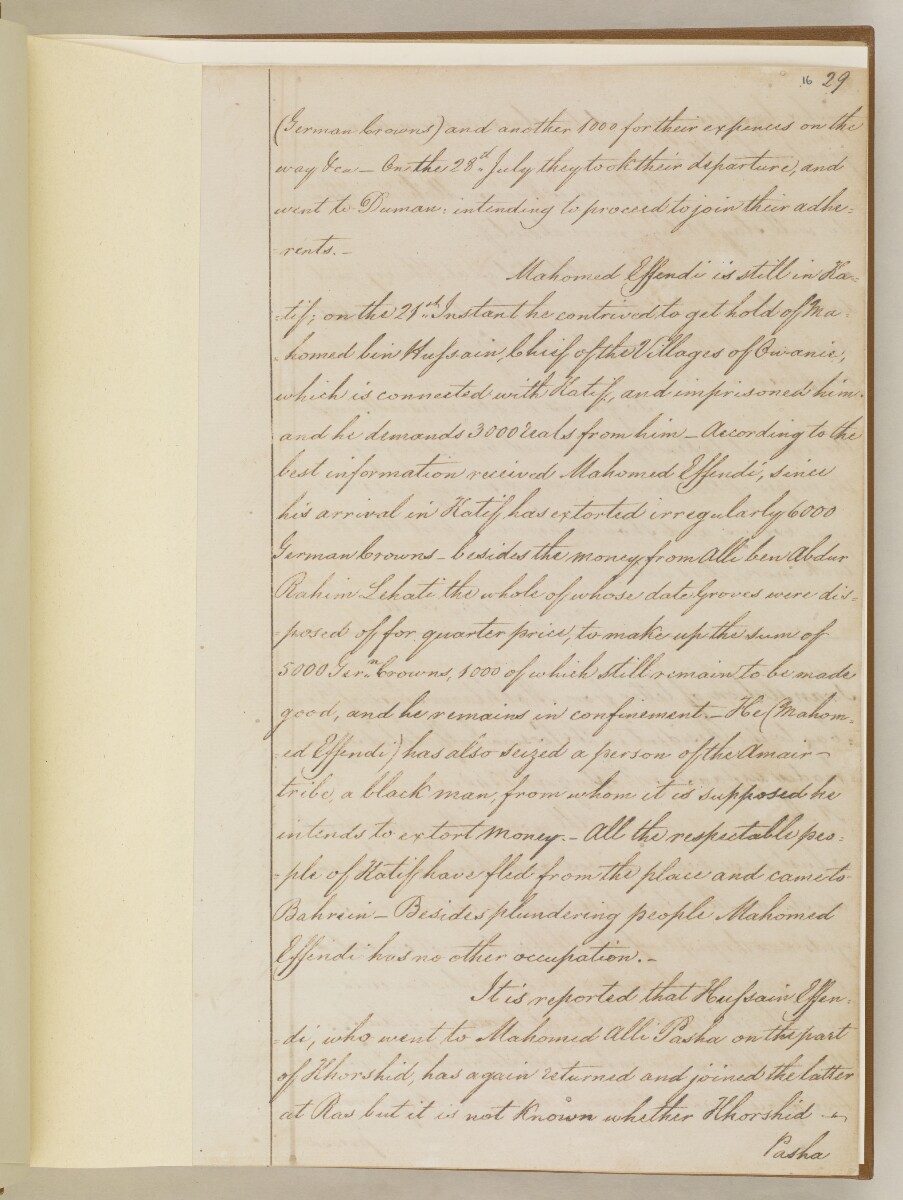 16 29
(German Crowns) and another 1000 for their expences on the
way &ca — On the 28th July they took their departure, and
went to Duman: intending to proceed to join their adhe=
=rents. —
Mahomed Effendi is still in Ka=
=tif; on the 21st Instant he contrived to get hold of Ma=
=homed bin Hussain, Chief of the Villages of Owanie,
which is connected with Katif, and imprisoned him.
and he demands 3000 reals from him — According to the
best information received Mahomed Effendi, since
his arrival in Katif, has extorted irregularly 6000
German Crowns — besides the money from Alli ben Abdur
Rahim Lehati the whole of whose date Groves were dis=
=posed off for quarter price, to make up the sum of
5000 Gern. Crowns, 1000 of which still remain to be made
good, and he remains in confinement. — He (Mahom=
=ed Effendi) has also seized a person of the Amair —
tribe, a black man, from whom it is supposed he
intends to extort money. — All the respectable peo=
=ple of Katif have fled from the place and came to
Bahrein — Besides plundering people Mahomed
Effendi has no other occupation. —
It is reported that Hussain Effen=
=di, who went to Mahomed Alli Pasha on the part
of Khorshid, has again returned and joined the latter
at Ras but it is not known whether Khorshid
Pasha